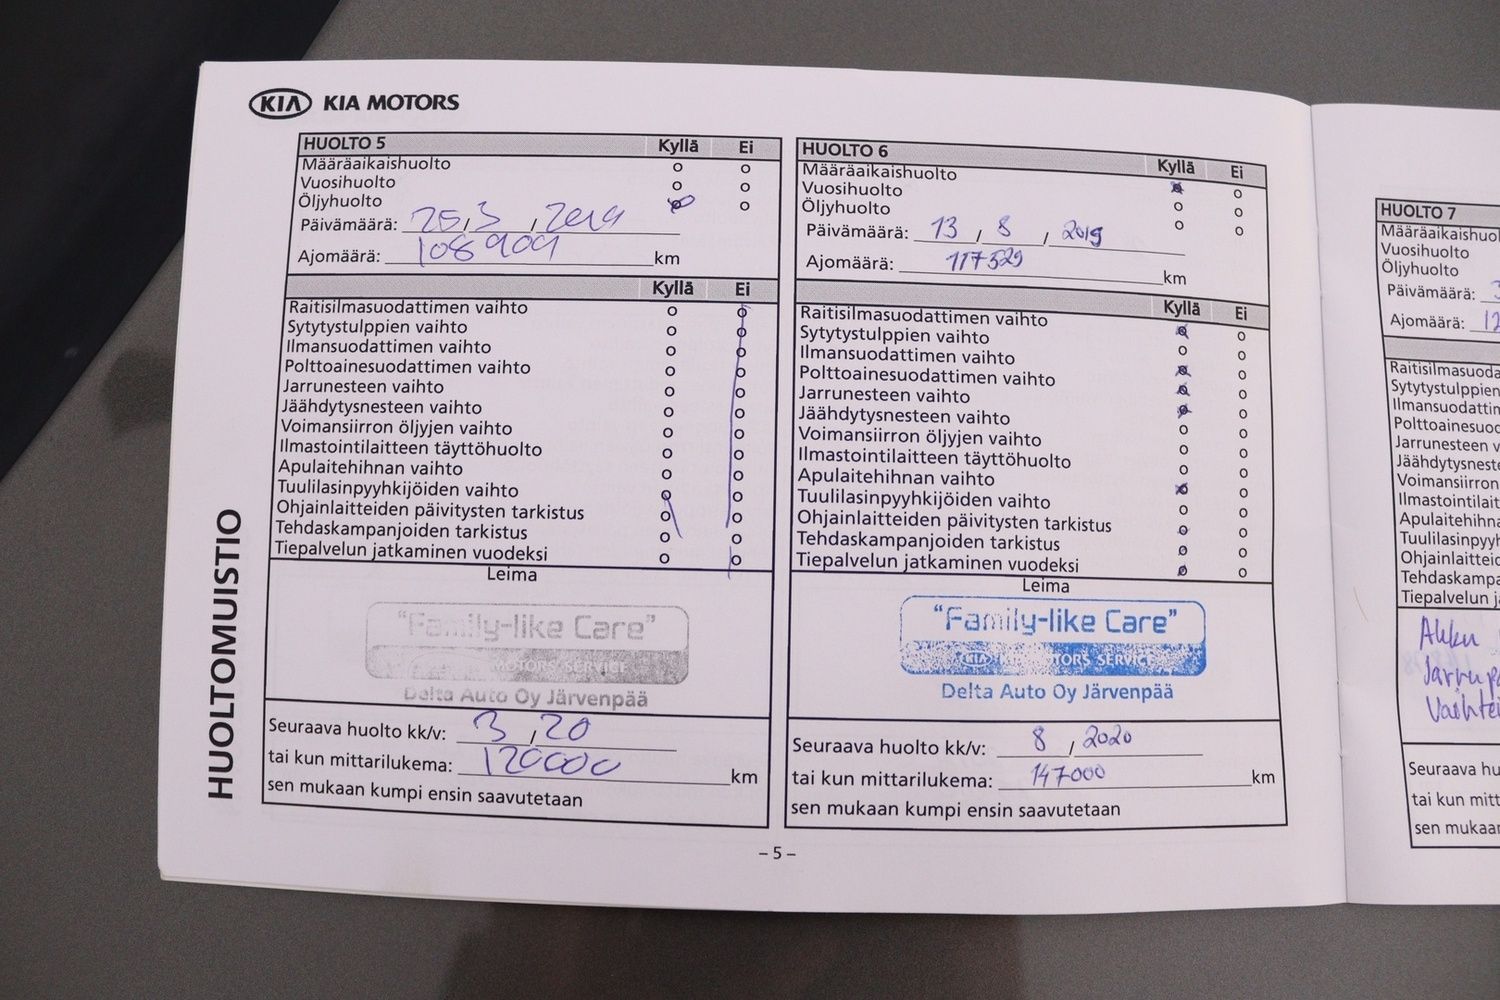 KIA KIA MOTORS
HUOLTOMUISTIO
HUOLTO 5 Kyllä Ei
Määräaikaishuolto
Vuosihuolto
Öljyhuolto
Päivämäärä: 25 / 3 / 2019
Ajomäärä: 108909 km
Kyllä Ei
Raitisilmasuodattimen vaihto
Sytytystulppien vaihto
Ilmansuodattimen vaihto
Polttoainesuodattimen vaihto
Jarrunesteen vaihto
Jäähdytysnesteen vaihto
Voimansiirron öljyjen vaihto
Ilmastointilaitteen täyttöhuolto
Apulaitehihnan vaihto
Tuulilasinpyyhkijöiden vaihto
Ohjainlaitteiden päivitysten tarkistus
Tehdaskampanjoiden tarkistus
Tiepalvelun jatkaminen vuodeksi
Leima
"Family-like Care"
MOTORS SERVICE
Delta Auto Oy Järvenpää
Seuraava huolto kk/v: 3 / 20
tai kun mittarilukema: 120000 km
sen mukaan kumpi ensin saavutetaan
HUOLTO 6 Kyllä Ei
Määräaikaishuolto
Vuosihuolto
Öljyhuolto
Päivämäärä: 13 / 8 / 2019
Ajomäärä: 117529 km
Kyllä Ei
Raitisilmasuodattimen vaihto
Sytytystulppien vaihto
Ilmansuodattimen vaihto
Polttoainesuodattimen vaihto
Jarrunesteen vaihto
Jäähdytysnesteen vaihto
Voimansiirron öljyjen vaihto
Ilmastointilaitteen täyttöhuolto
Apulaitehihnan vaihto
Tuulilasinpyyhkijöiden vaihto
Ohjainlaitteiden päivitysten tarkistus
Tehdaskampanjoiden tarkistus
Tiepalvelun jatkaminen vuodeksi
Leima
"Family-like Care"
KIA MOTORS SERVICE
Delta Auto Oy Järvenpää
Seuraava huolto kk/v: 8 / 2020
tai kun mittarilukema: 147000 km
sen mukaan kumpi ensin saavutetaan
– 5 –
HUOLTO 7
Määräaikaishuol
Vuosihuolto
Öljyhuolto
Päivämäärä:
Ajomäärä: 12
Raitisilmasuoda
Sytytystulppien
Ilmansuodattin
Polttoainesuoc
Jarrunesteen v
Jäähdytysneste
Voimansiirron
Ilmastointilait
Apulaitehihna
Tuulilasinpyyh
Ohjainlaittei
Tehdaskampa
Tiepalvelun ja
Akku
Jarrupa
Vaihtei
Seuraava hu
tai kun mitt
sen mukaan